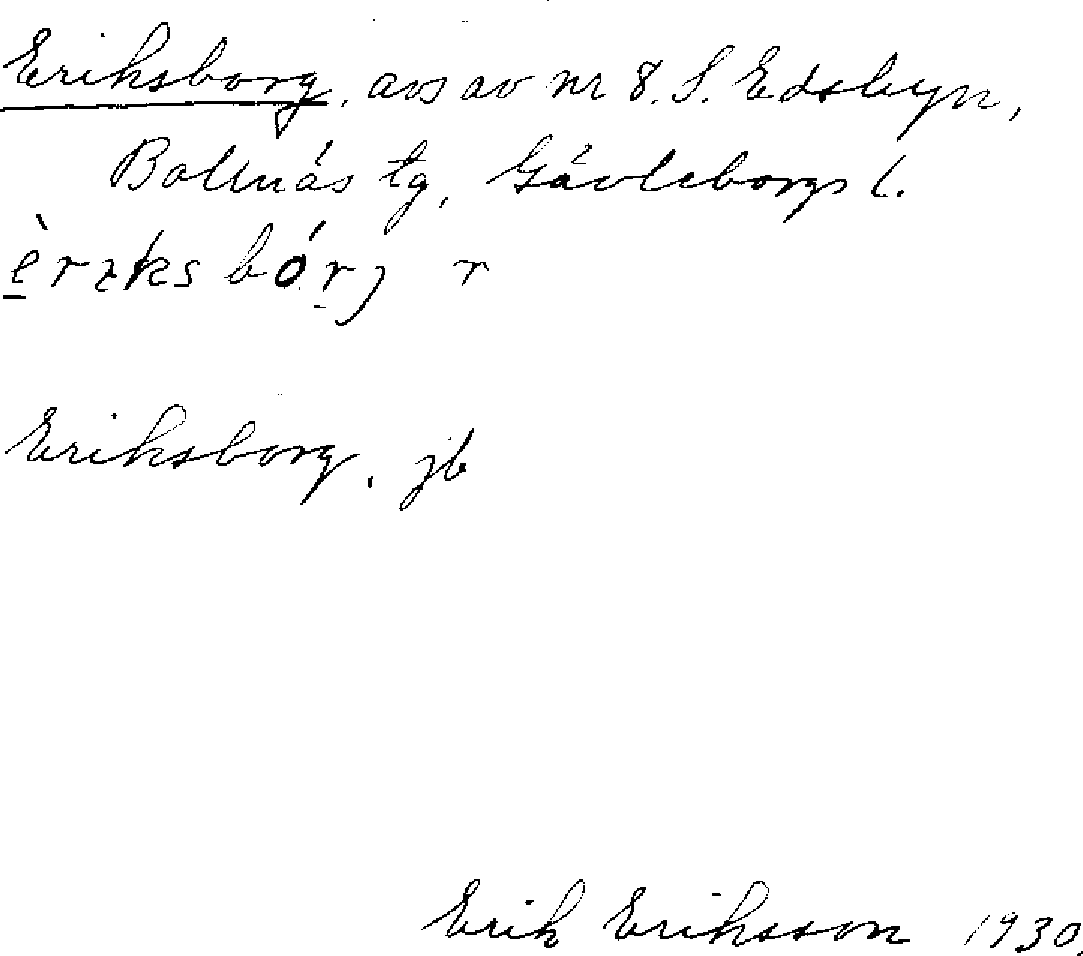 Eriksborg, avs av nr 8. S. Edsbyn,
Bollnäs tg, Gävleborgs l.
èrıksbórj r
Eriksborg, jb
Erik Eriksson 1930.